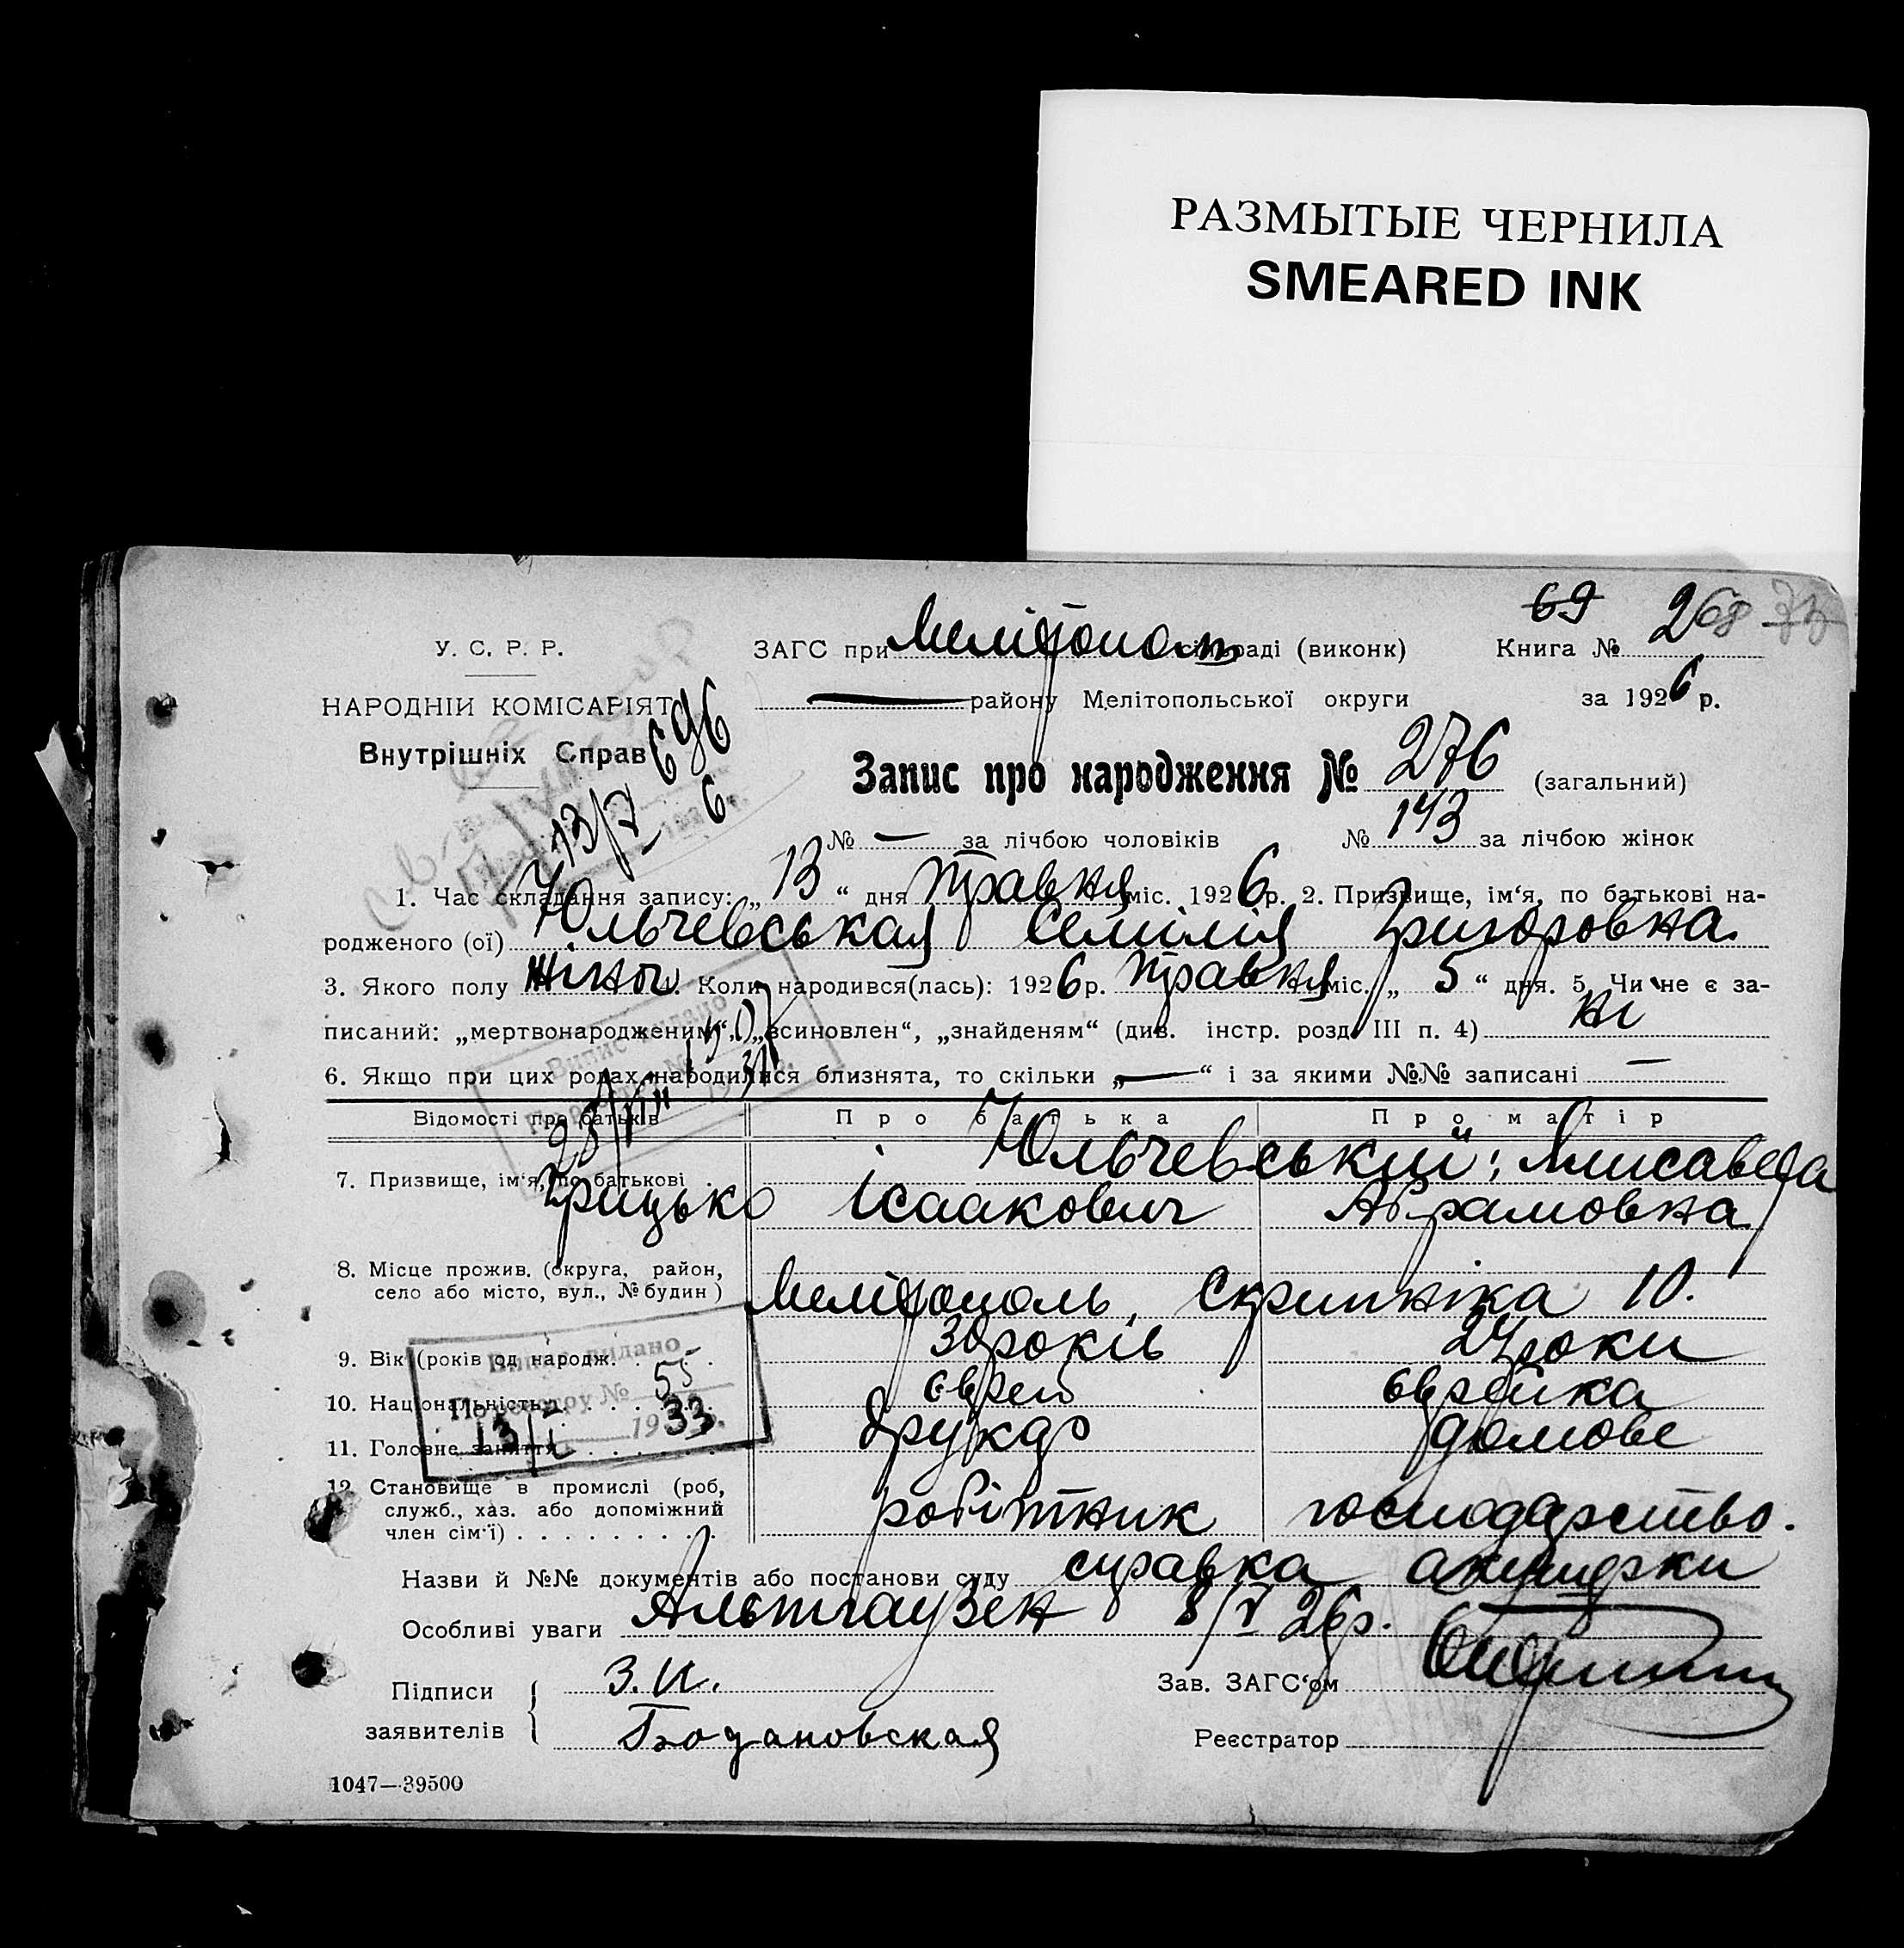 РАЗМЫТЫЕ ЧЕРНИЛА
SMEARED INK
69 268 73
У. С. Р. Р.
ЗАГС при Мелітопол раді (виконк)
Книга №
НАРОДНІЙ КОМІСАРІЯТ
— району Мелітопольської округи
за 1926 р.
Внутрішніх Справ
696
6
13/V
Запис про народження № 276 (загальний)
№ — за лічбою чоловіків № 143 за лічбою жінок
1. Час складання запису: „ 13 “ дня травня міс. 1926 р. 2. Призвище, ім‘я, по батькові на-
родженого (ої) Юльчевськая Семілія Григоровна.
3. Якого полу жіноч. 4. Коли народився(лась): 1926 р. травня міс. „ 5 “ дня. 5. Чи не є за-
писаний: „мертвонародженим“, „всиновлен“, „знайденям“ (див. інстр. розд. III п. 4) ні
6. Якщо при цих родах народилися близнята, то скільки „—“ і за якими №№ записані —
Випис видано
25/VIII
Відомості про батьків
Про батька
Про матір
7. Призвище, ім‘я, по батькові .
Юльчевський: Лисавета
Грицько Ісаакович Абрамовна
8. Місце прожив. (округа, район,
село або місто, вул., № будин)
Мелітополь, Скрипніка 10.
9. Вік (років од народж. . . . .
30 років 24 роки
10. Національність . . . . .
єврей єврейка
11. Головне заняття . . . . .
друкар домове
Випис видано
По реєстру № 55
13/I 1933.
12. Становище в промислі (роб,
служб., хаз. або допоміжний
член сім‘ї) . . . . . . . . .
робітник господарство.
Назви й №№ документів або постанови суду справка акушерки
Особливі уваги Альтгаузен 8/V 26р.
Підписи
заявителів
З. И.
Богдановская
Зав. ЗАГС‘ом
Реєстратор
1047—39500